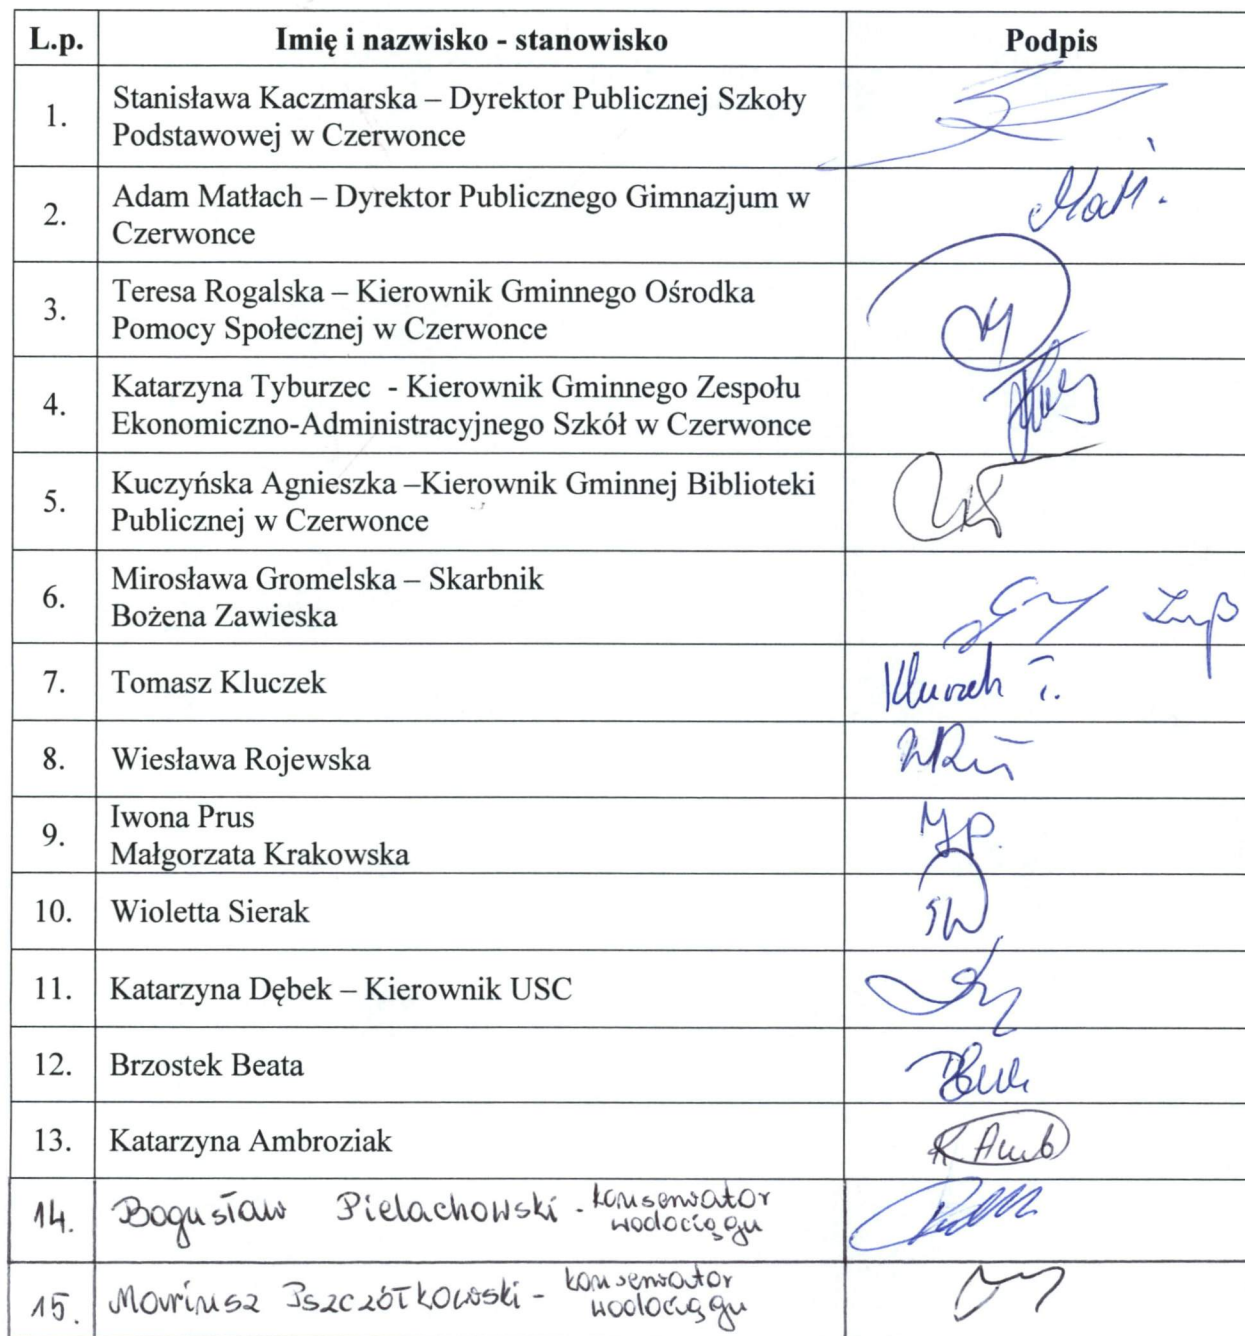 L.p. Imię i nazwisko - stanowisko Podpis
1. Stanisława Kaczmarska – Dyrektor Publicznej Szkoły
Podstawowej w Czerwonce
2. Adam Matłach – Dyrektor Publicznego Gimnazjum w
Czerwonce
3. Teresa Rogalska – Kierownik Gminnego Ośrodka
Pomocy Społecznej w Czerwonce
4. Katarzyna Tyburzec - Kierownik Gminnego Zespołu
Ekonomiczno-Administracyjnego Szkół w Czerwonce
5. Kuczyńska Agnieszka –Kierownik Gminnej Biblioteki
Publicznej w Czerwonce
6. Mirosława Gromelska – Skarbnik
Bożena Zawieska
7. Tomasz Kluczek Kluczek T.
8. Wiesława Rojewska
9. Iwona Prus
Małgorzata Krakowska
10. Wioletta Sierak SW
11. Katarzyna Dębek – Kierownik USC
12. Brzostek Beata
13. Katarzyna Ambroziak K Amb
14. Bogusław Pielachowski - konserwator
wodociągu
15. Mariusz Pszczółkowski - konserwator
wodociągu